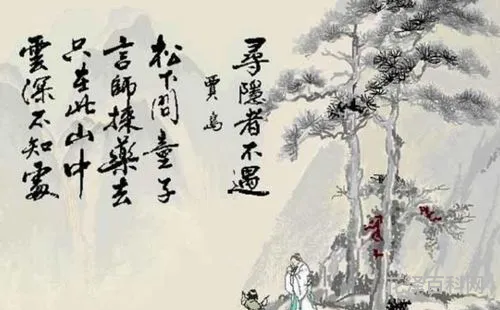 尋隱者不遇
賈島
松下問童子
言師採藥去
只在此山中
雲深不知處
百科网